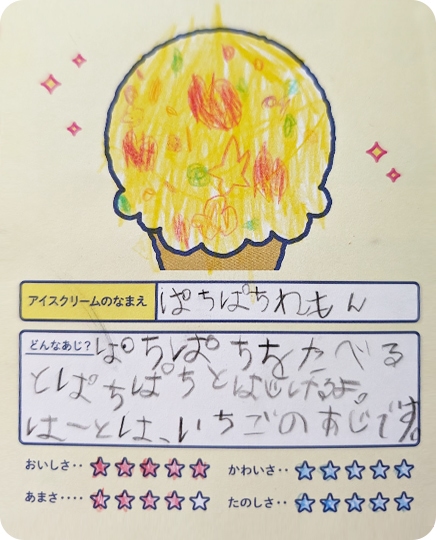 アイスクリームのなまえ ぱちぱちれもん
どんなあじ? ぱちぱちをたべる
とぱちぱちとはじけるよ。
はーとは、いちごのあじです。
おいしさ‥ ★★★★★ かわいさ‥ ★★★★★
あまさ‥‥ ★★★★☆ たのしさ‥ ★★★★★